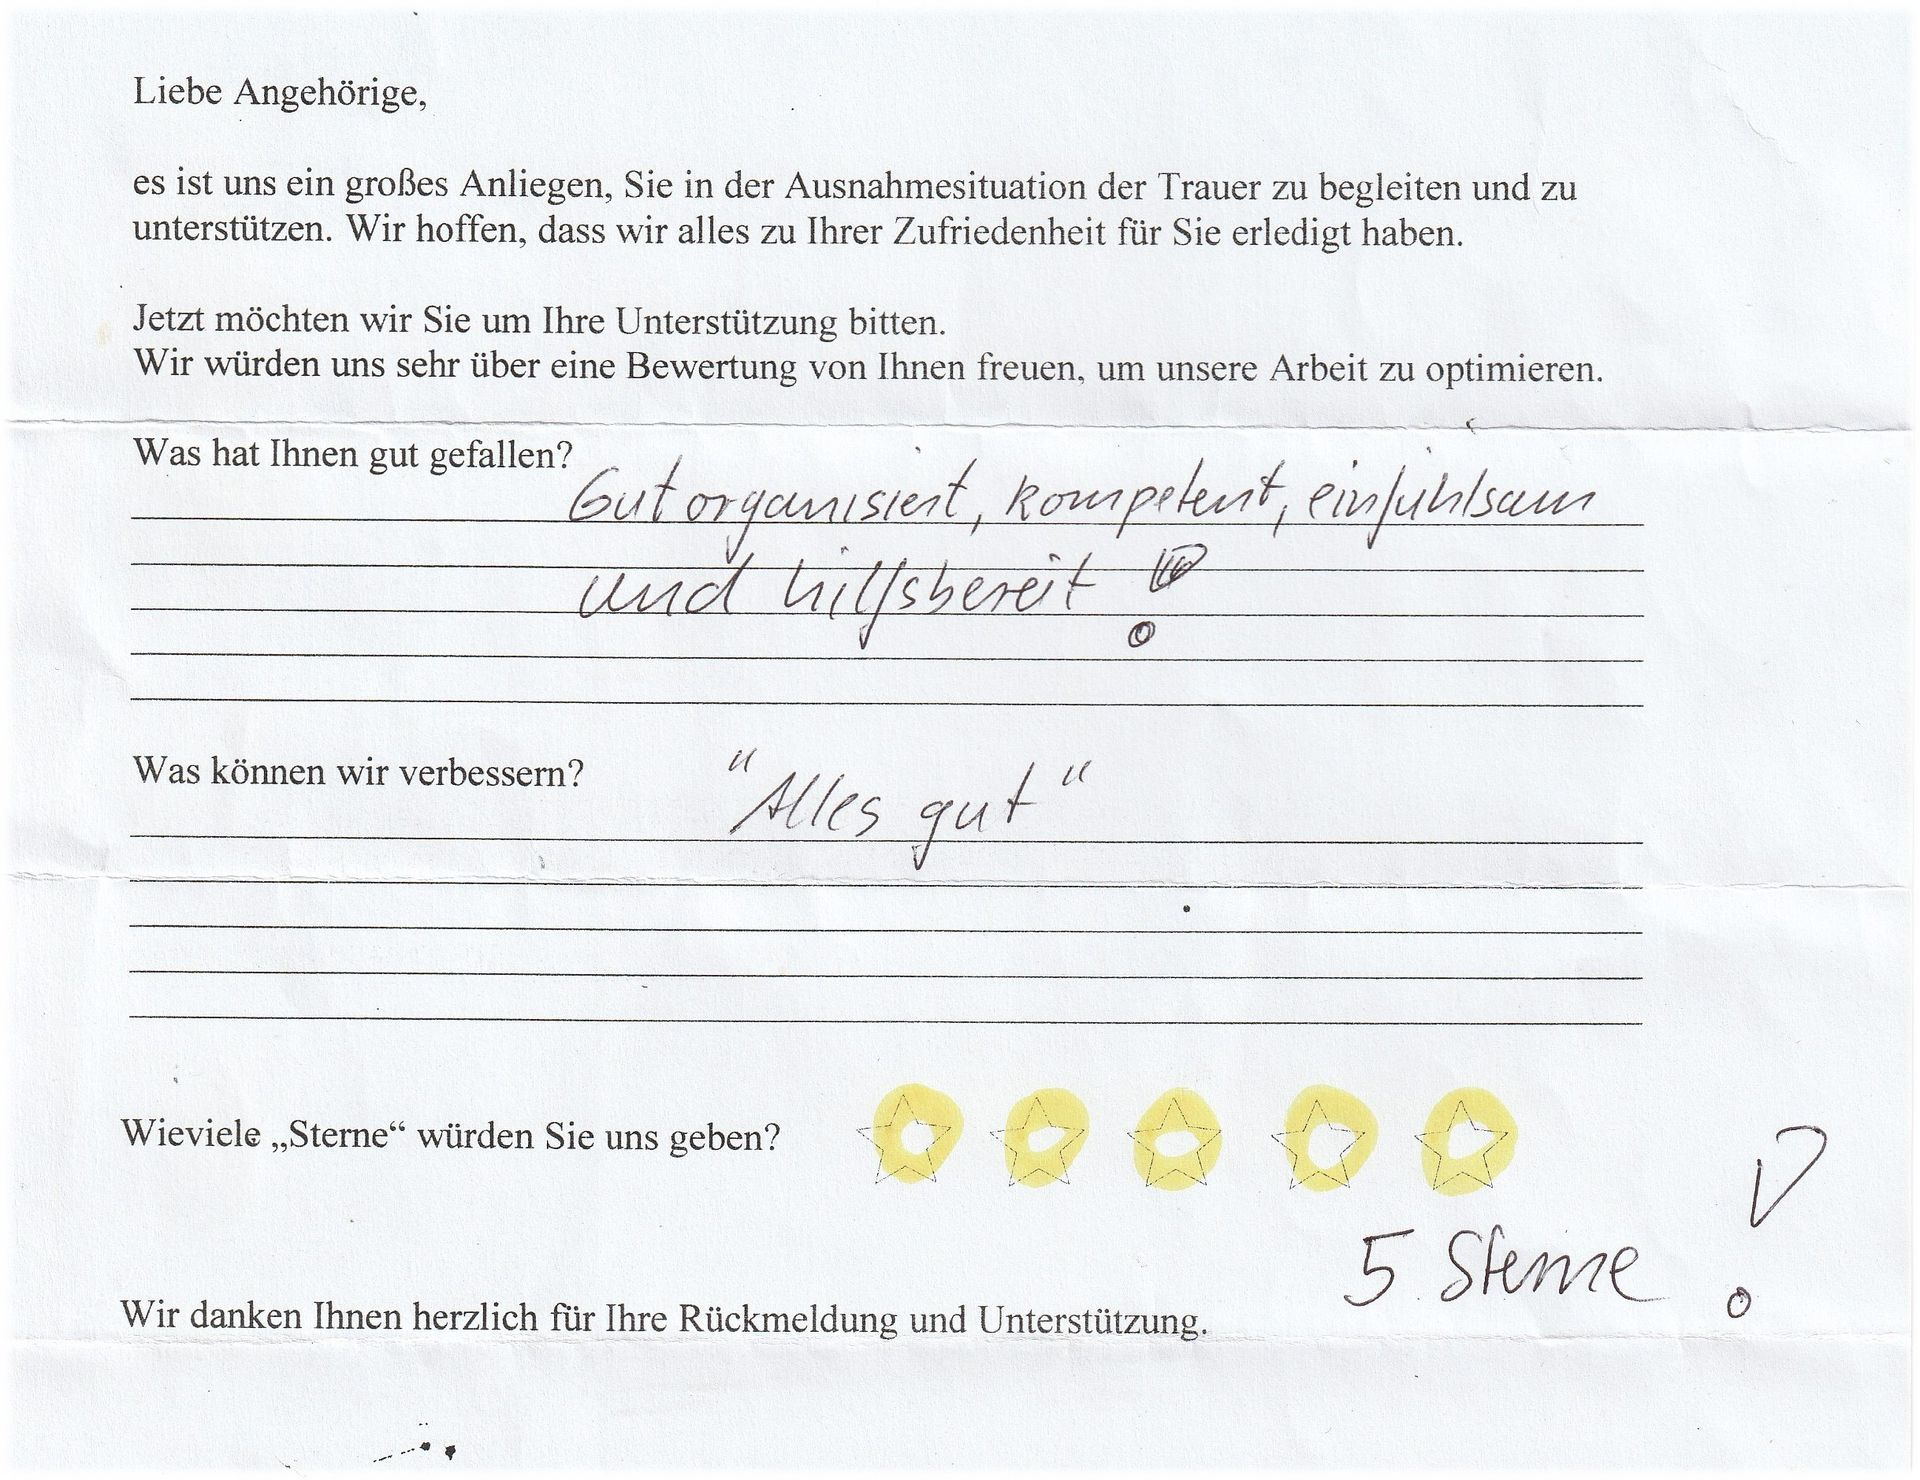 Liebe Angehörige,
es ist uns ein großes Anliegen, Sie in der Ausnahmesituation der Trauer zu begleiten und zu
unterstützen. Wir hoffen, dass wir alles zu Ihrer Zufriedenheit für Sie erledigt haben.
Jetzt möchten wir Sie um Ihre Unterstützung bitten.
Wir würden uns sehr über eine Bewertung von Ihnen freuen, um unsere Arbeit zu optimieren.
Was hat Ihnen gut gefallen?
Gut organisiert, kompetent, einfühlsam
und hilfsbereit !
Was können wir verbessern?
"Alles gut"
Wieviele „Sterne“ würden Sie uns geben?
5 Sterne !
Wir danken Ihnen herzlich für Ihre Rückmeldung und Unterstützung.